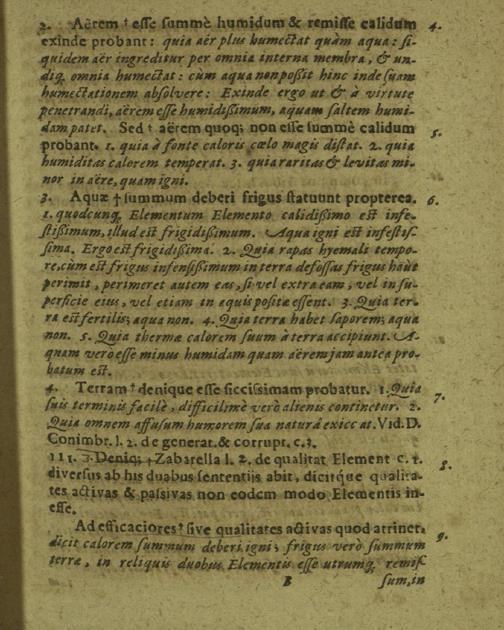 2. Aërem † esse summè humidum & remisse calidum 4.
exinde probant: quia aër plus humectat quàm aqua: si-
quidem aër ingreditur per omnia interna membra, & un-
diq; omnia humectat: cùm aqua non poßit hinc inde suam
humectationem absolvere: Exinde ergo ut & à virtute
penetrandi, aërem esse humidißimum, aquam saltem humi-
dam patet. Sed † aërem quoq; non esse summè calidum 5.
probant. 1. quia à fonte caloris cœlo magis distat. 2. quia
humiditas calorem temperat. 3. quia raritas & levitas mi-
nor in aëre, quam igni.
3. Aquæ † summum deberi frigus statuunt propterea. 6.
1. quodcunq; Elementum Elemento calidißimo est infe-
stißimum, illud est frigidißimum. Aqua igni est infestiß-
sima. Ergo est frigidißima. 2. Quia rapas hyemali tempo-
re, cùm est frigus infensißimum in terra defossas frigus haut
perimit, perimeret autem eas, si vel extra eam, vel in su-
perficie eius, vel etiam in aquis positæ essent. 3. Quia ter-
ra est fertilis; aqua non. 4. Quia terra habet saporem; aqua
non. 5. Quia thermæ calorem suum à terra accipiunt. A-
quam vero esse minus humidam quam aërem jam antea pro-
batum est.
4. Terram † denique esse siccissimam probatur. 1. Quia 7.
suis terminis facilè, difficilimè verò alienis continetur. 2.
Quia omnem affusum humorem sua naturâ exiccat. Vid. D.
Conimbr. l. 2. de generat. & corrupt. c. 3.
III. Deniq; † Zabarella l. 2. de qualitat Element c. 1. 8.
diversus ab his duabus sententiis abit, dicitque qualita-
tes activas & passivas non eodem modo Elementis in-
esse.
Ad efficaciores † sive qualitates activas quod attinet. 9.
dicit calorem summum deberi igni; frigus verò summum
terræ, in reliquis duobus Elementis esse utrumq; remis-
B sum, in